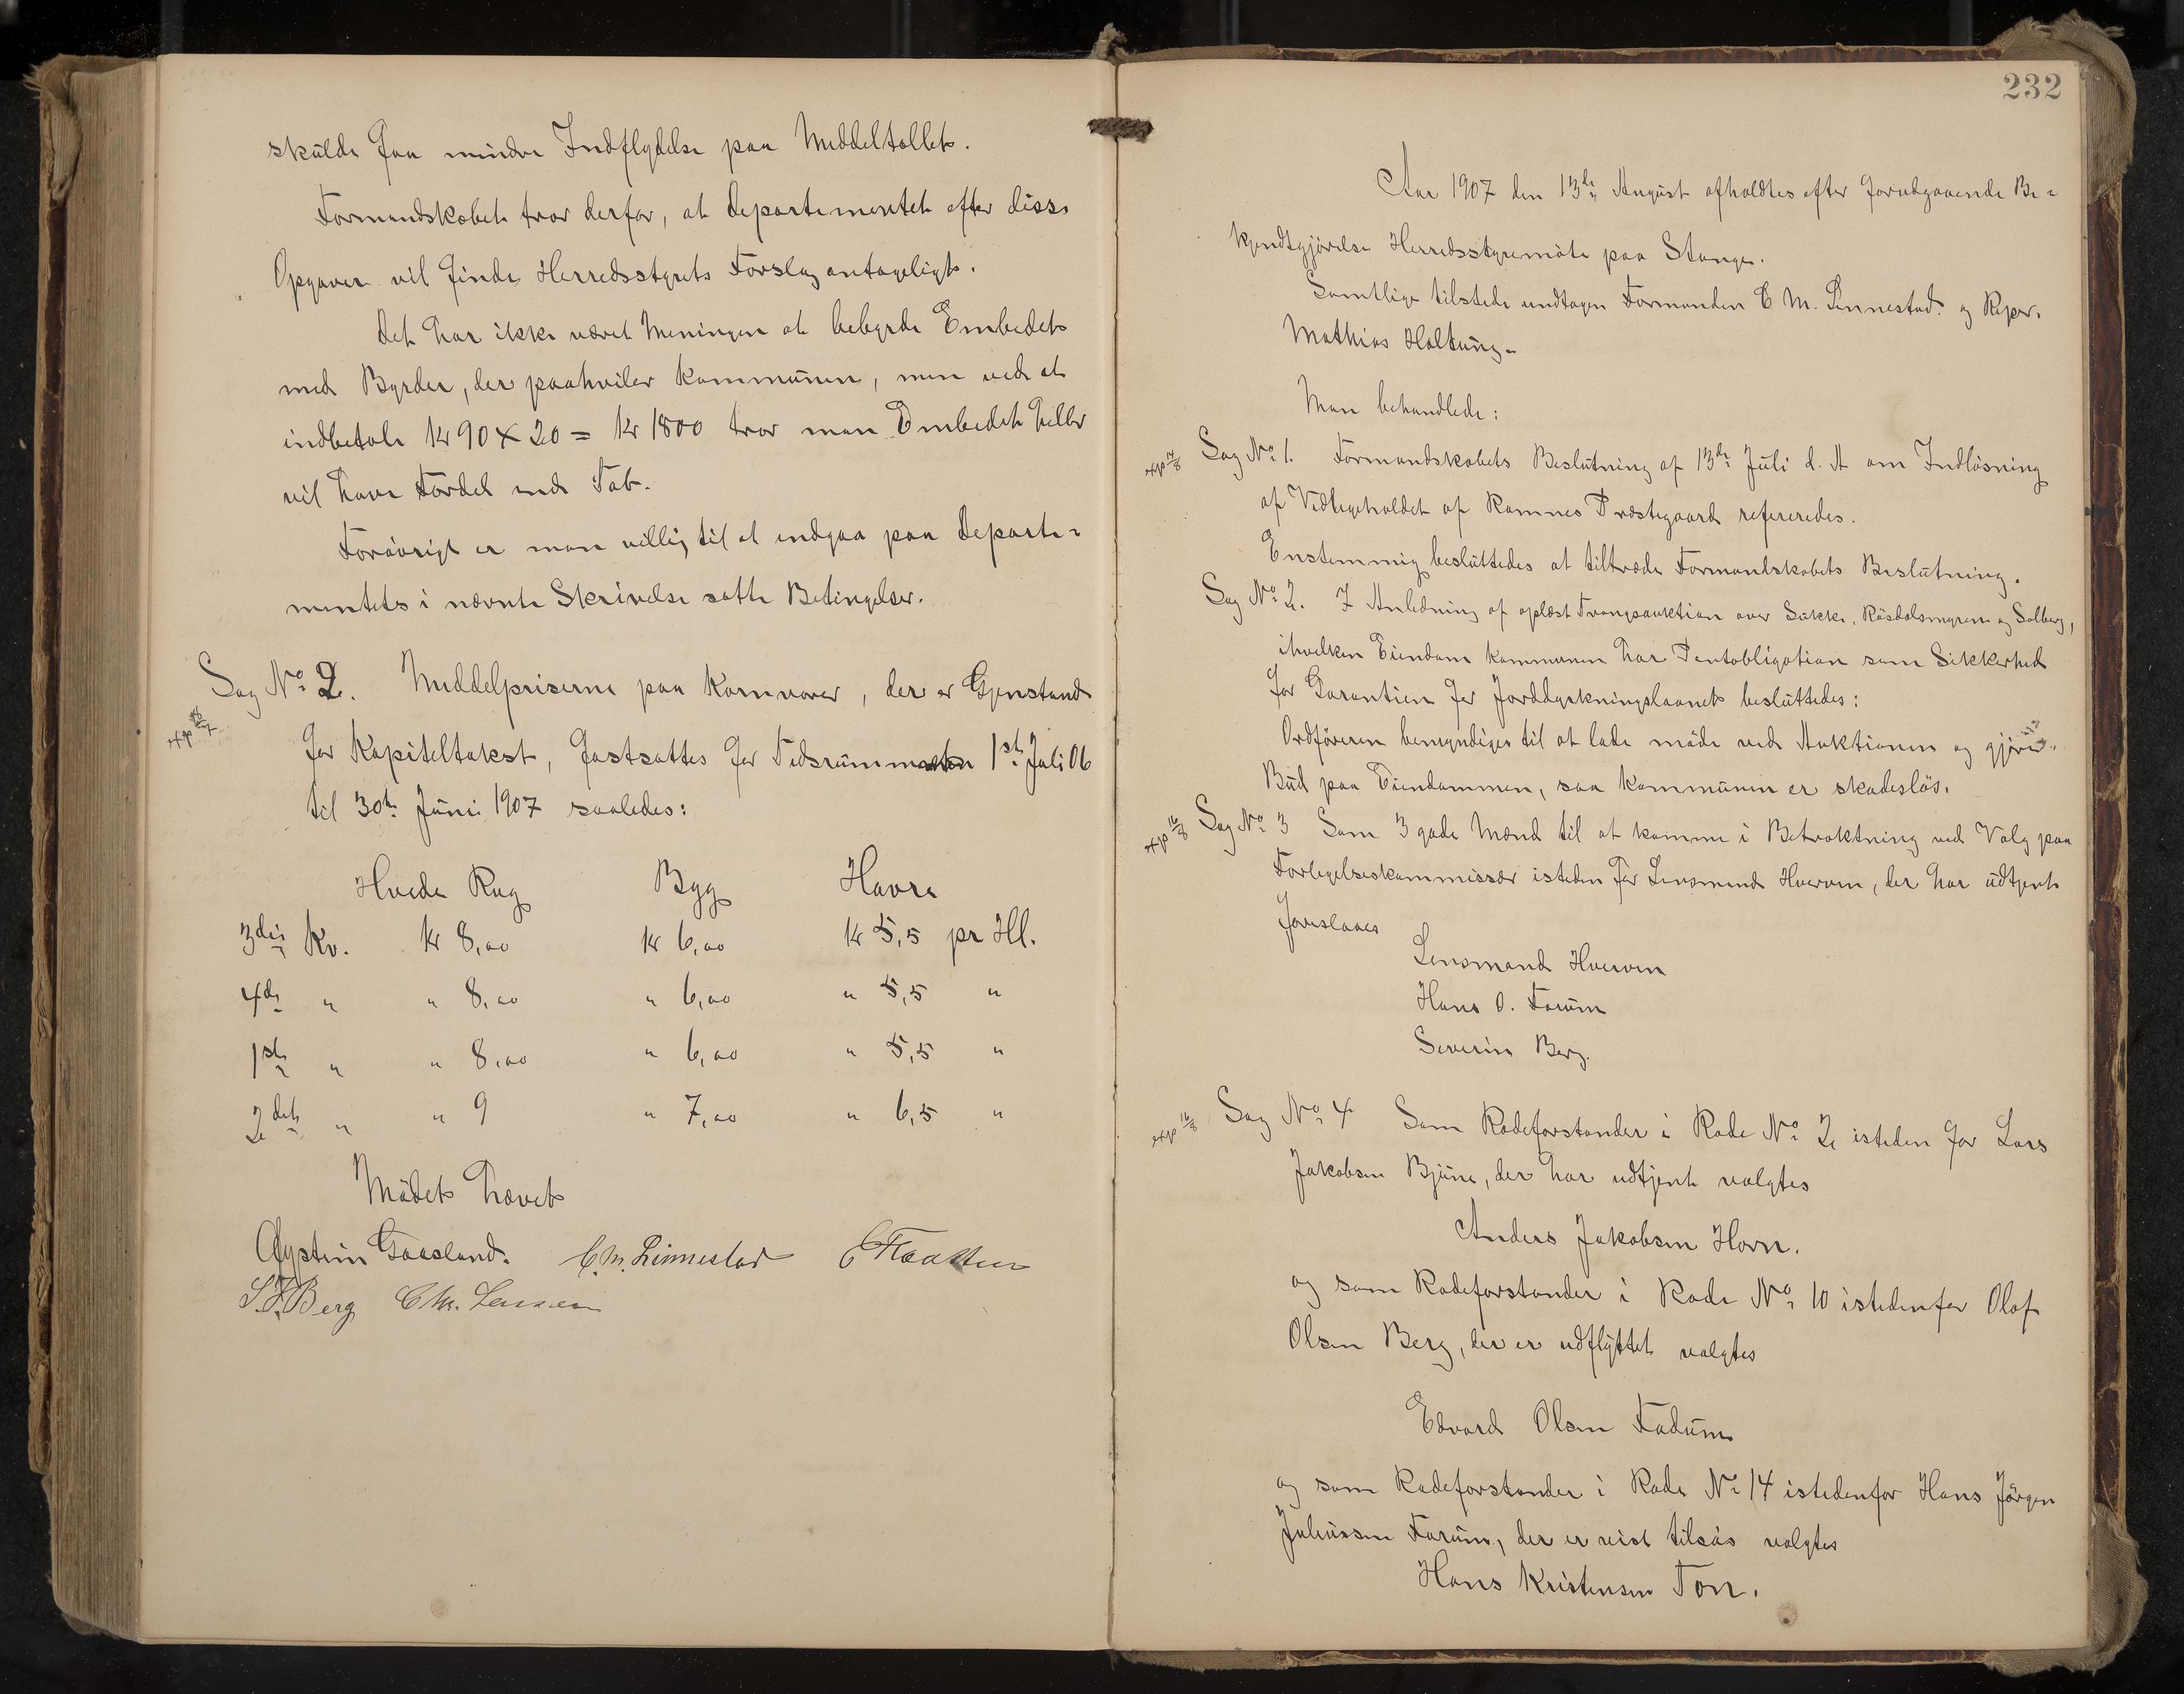 skulde faa mindre Indflydelse paa Middeltallet.
Formandskabet tror derfor, at Departementet efter disse
Opgaver vil finde Herredsstyrets Forslag antageligt.
Det har ikke været Meningen at bebyrde Embedet
med Byrder, der paahviler Kommunen, men ved at
indbetale Kr 90 x 20 = Kr 1800 tror man Embedet heller
vil have Fordel end Tab.
Forøvrigt er man villig til at indgaa paa Departe-
mentets i nævnte Skrivelse satte Betingelser.
Sag No 2. Middelpriserne paa Kornvarer, der er Gjenstand
for Kapiteltakst, fastsattes for Tidsrummet 1ste Juli 06
til 30te Juni 1907 saaledes:
Hvede Rug Byg Havre
3die Kv. Kr 8,00 Kr 6,00 Kr 5,5 pr Hl.
4de " " 8,00 " 6,00 " 5,5 "
1ste " " 8,00 " 6,00 " 5,5 "
2det " " 9 " 7,00 " 6,5 "
Mødet hævet
Øystein Gaasland. C. M. Linnestad
S. F. Berg Chr. Lensen
232
Aar 1907 den 13de August afholdtes efter forudgaaende Be-
kjendtgjørelse Herredsstyremøte paa Stange.
Samtlige tilstede undtagen Formanden C M. Linnestad og Repr.
Mathias Holtung.
Man behandlede:
Exp 14/8 Sag No 1. Formandskabets Beslutning af 13de Juli d. A om Indløsning
af Vedligeholdet af Ramnes Præstegaard refereredes.
Enstemmig besluttedes at tiltræde Formandskabets Beslutning.
Sag No 2. I Anledning af oplæst Tvangsauktion over Sukke, Røsdalsmyren og Solberg,
ihvilken Eiendom Kommunen har Pantobligation som Sikkerhed
for Garantien for Jorddyrkningslaanet besluttedes:
Ordføreren bemyndiges til at lade møde ved Auktionen og gjøre
Bud paa Eiendommen, saa Kommunen er skadesløs.
Exp 16/8 Sag No 3 Som 3 gode Mænd til at komme i Betraktning ved Valg paa
Forligelseskommissær isteden for Lensmand Hverven, der har udtjent
foreslaaes
Lensmand Hverven
Hans O. Farum
Severin Berg.
Exp 16/8 Sag No 4 Som Rodeforstander i Rode No 2 isteden for Lars
Jakobsen Bjune, der har udtjent valgtes
Anders Jakobsen Horn.
og som Rodeforstander i Rode No 10 istedenfor Olaf
Olsen Berg, der er udflyttet valgtes
Edvard Olsen Fadum
og som Rodeforstander i Rode No 14 istedenfor Hans Jørgen
Juliussen Farum, der er reist tilsøs valgtes
Hans Kristensen Ton.